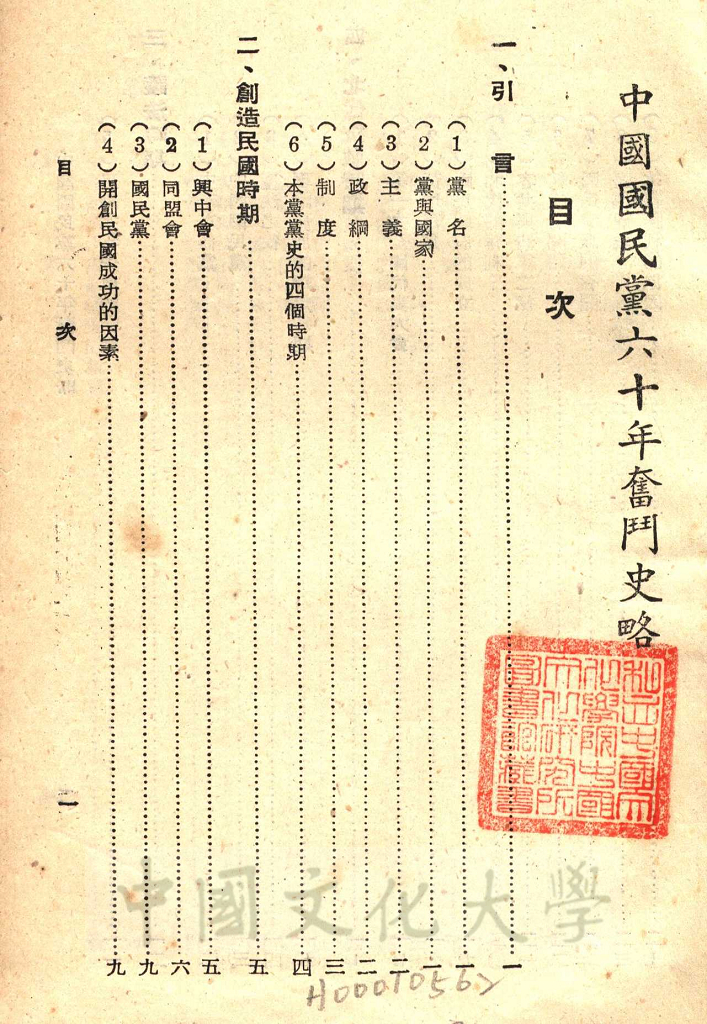 中國國民黨六十年奮鬥史略
目次
一、引言…一
(1)黨名…一
(2)黨與國家…一
(3)主義…二
(4)政綱…二
(5)制度…三
(6)本黨黨史的四個時期…四
二、創造民國時期…五
(1)興中會…五
(2)同盟會…六
(3)國民黨…九
(4)開創民國成功的因素…九
目次
一
私立中國文
化學院中國
文化研究所
圖書館藏書
中國文化大學